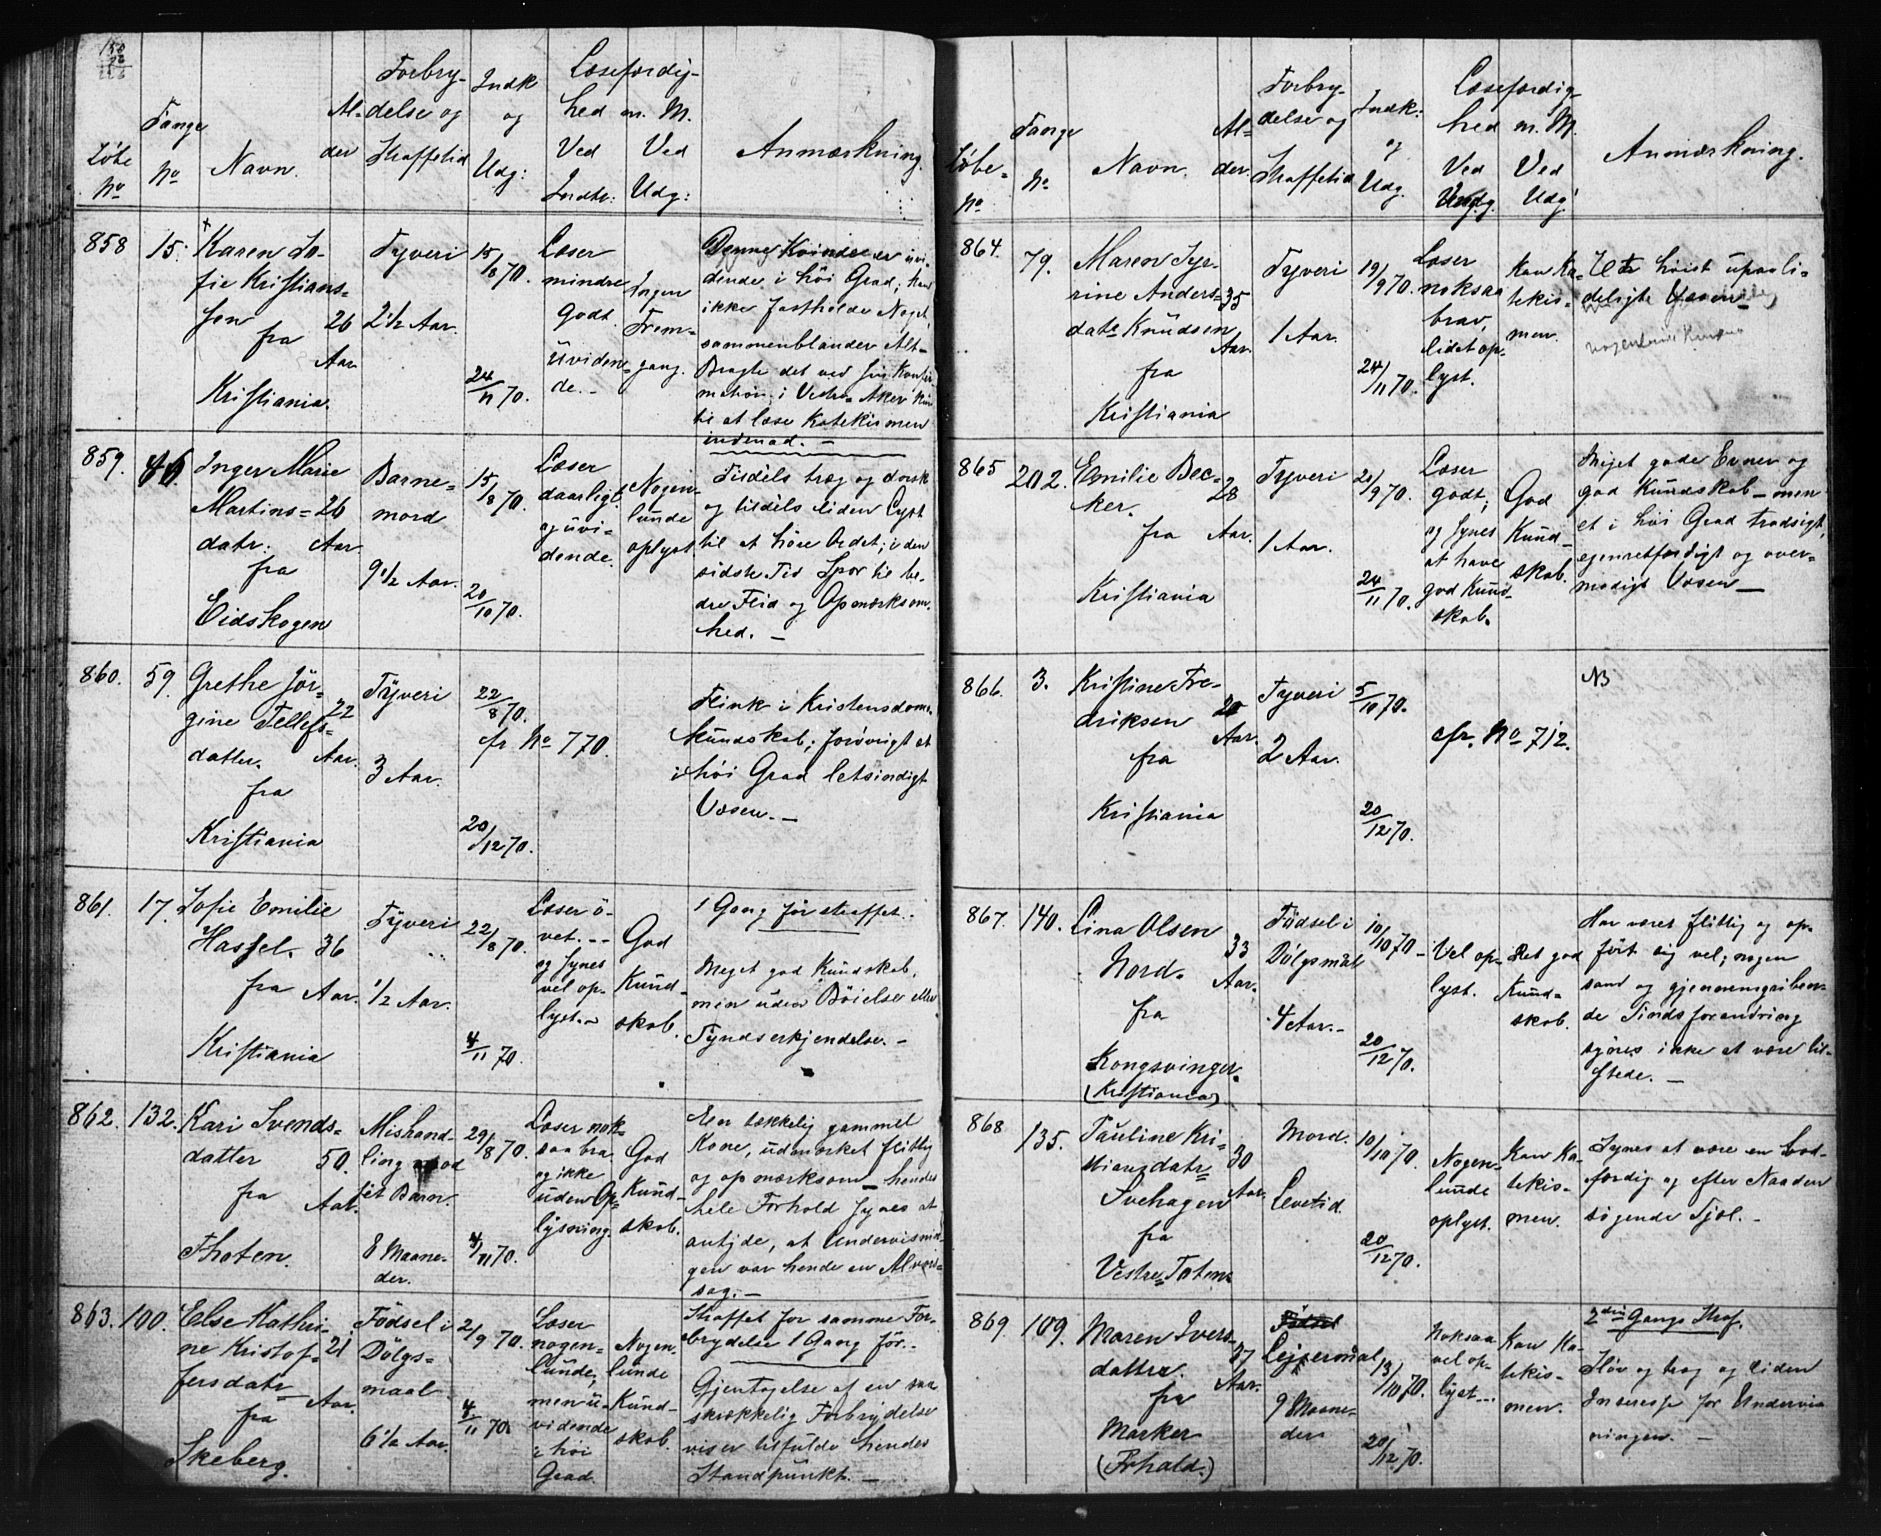 Løbe No
Fange No
Navn.
Alder
Forbrydelse og Straffetid
Indk og Udg:
Læsefærdighed m. M.
Ved Indtr:
Ved Udg:
Anmærkning.
858
15.
Karen Sofie Kristiansen
fra
Kristiania.
26 Aar
Tyveri
2 1/2 Aar.
15/8 70.
24/11 70.
Læser
mindre
godt
uviden-
de. -
Ingen
Frem-
gang.
Denne Kvinde er uvi-
dende i høi Grad; kan
ikke fastholde Noget,
sammenblander Alt -
Bragte det ved sin Konfir-
mation i Vestre Aker kun
til at læse Katekismen
indenad. -
859.
46
Inger Marie
Martins-
datr:
fra
Eidskogen
26
Aar.
Barne-
mord
9 1/2 Aar.
15/8 70.
20/10 70.
Læser
daarligt
og uvi-
dende.
Nogen-
lunde
oplyst
Tildels træg og dorsk
og tildels liden Lyst
til at høre Ordet; i den
sidste Tid Spor til be-
dre Flid og Opmærksom-
hed. -
860.
59.
Grethe Jør-
gine Tellefs-
datter.
fra
Kristiania
22
Aar.
Tyveri
3 Aar.
22/8 70.
cfr No 770.
20/12 70.
Flink i Kristendoms-
kundskab; forøvrigt et
i høi Grad letsindigt
Væsen. -
861.
17.
Sofie Emilie
Hassel.
fra
Kristiania
36
Aar.
Tyveri
1/2 Aar.
22/8 70.
4/11 70.
Læser ø-
vet. --
og synes
vel op-
lyst. -
God
Kund-
skab.
1 Gang før straffet.
Meget god Kundskab,
men uden Bøielse eller
Syndserkjendelse. -
862.
132.
Kari Svends-
datter
fra
Thoten.
50.
Aar.
Mishand-
ling mod
sit Barn.
8 Maane-
der.
29/8 70.
4/11 70.
Læser nok-
saa bra
og ikke
uden Op-
lysning.
God
Kund-
skab.
En tækkelig gammel
Kone, udmærket flittig
og opmærksom - hendes
hele Forhold synes at
antyde, at Undervisnin-
gen var hende en Alvors-
sag. -
863.
100.
Else Kathri-
ne Kristof-
fersdatr
fra
Skeberg.
21
Aar.
Fødsel i
Dølgs-
maal
6 1/2 Aar.
2/9 70.
4/11 70.
Læser
nogen-
lunde,
men u-
vidende
i høi
Grad.
Nogen-
lunde
Kund-
skab.
Straffet for samme For-
brydelse 1 Gang før.
Gjentagelse af en saa
skrækkelig Forbrydelse
viser tilfulde hendes
Standpunkt. -
Løbe-No
Fange No
Navn.
Alder.
Forbrydelse og Straffetid
Indk: og Udg.
Læsefærdighed m. M.
Ved
Ved Udg.
Anmærkning.
864.
79.
Maren Sy-
rine Anders-
datr Knudsen
fra
Kristiania
35
Aar.
Tyveri
1 Aar.
19/9 70.
24/11 70.
Læser
noksaa
brav,
lidet op-
lyst.
Kan Ka-
tekis-
men.
Et høist upaali-
deligt Væsen -
865
202.
Emilie Bec-
ker.
fra
Kristiania
28
Aar.
Tyveri
1 Aar.
2/9 70.
24/11 70.
Læser
godt,
og synes
at have
god Kund-
skab.
God
Kund-
skab.
Meget gode Evner og
god Kundskab - men
et i høi Grad trodsigt,
egenretfærdigt og over-
modigt Væsen -
866.
3.
Kristine Fre-
driksen
fra
Kristiania
Aar.
Tyveri
2 Aar.
5/10 70.
20/12 70.
cfr. No 712.
NB
867.
140.
Lina Olsen
Nord.
fra
Kongsvinger.
(Kristiania)
33
Aar.
Fødsel i
Dølgsmål
4 Aar. -
10/10 70
20/12 70.
Vel op-
lyst.
Ret god
Kund-
skab.
Har været flittig og op-
ført sig vel; nogen
sand og gjennemgriben-
de Sindsforandring
synes ikke at være til-
stede. -
868
135.
Pauline Kri-
stiansdatr
Svehagen
fra
Vestre Toten
30
Aar.
Mord.
Levetid.
10/10 70.
20/12 70.
Nogen-
lunde
oplyst.
Kan Ka-
tekis-
men.
Synes at være en bod-
færdig og efter Naaden
søgende Sjæl. -
869.
109.
Maren Ivers-
datter.
fra
Marker
37
Aar.
Leiermaal
9 Maane-
der
13/10 70.
20/12 70.
Noksaa
vel op-
lyst.
Kan Ka-
tekis-
men.
2den Gangs Straf.
Sløv og træg og liden
Interesse for Undervis-
ningen. -